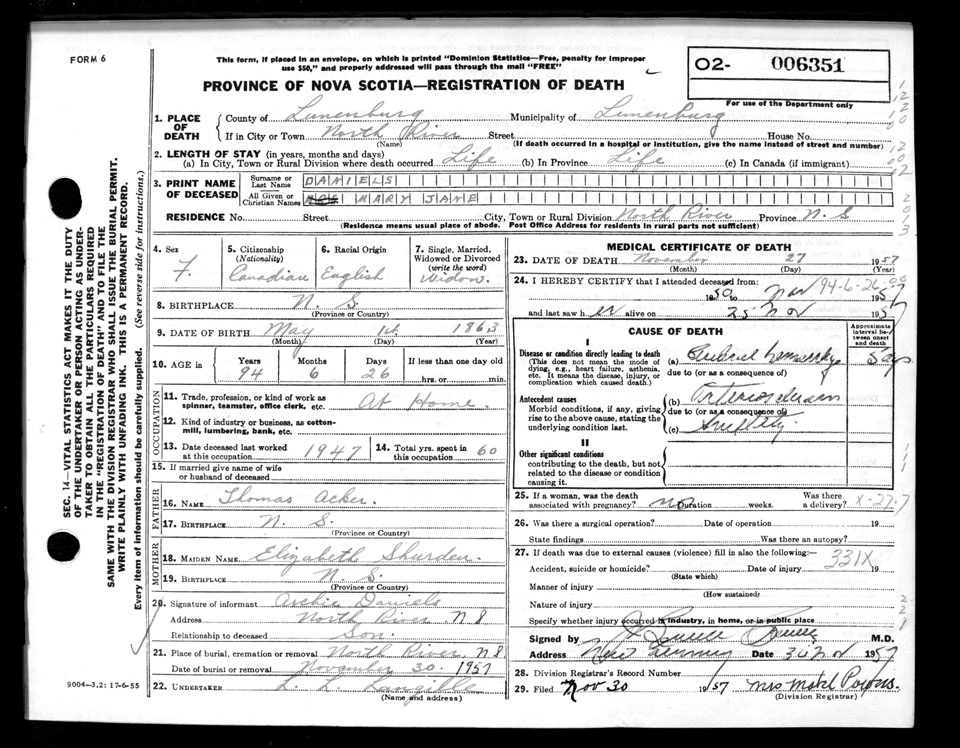 FORM 6
This form, if placed in an envelope, on which is printed "Dominion Statistics—Free, penalty for improper
use $50," and properly addressed will pass through the mail "FREE"
02- 006351
For use of the Department only
PROVINCE OF NOVA SCOTIA—REGISTRATION OF DEATH
1. PLACE OF DEATH
County of Lunenburg Municipality of Lunenburg
If in City or Town North River Street House No.
(Name) (If death occurred in a hospital or institution, give the name instead of street and number)
2. LENGTH OF STAY (in years, months and days)
(a) In City, Town or Rural Division where death occurred Life (b) In Province Life (c) In Canada (if immigrant)
3. PRINT NAME OF DECEASED
Surname or Last Name DANIELS
All Given or Christian Names MARY JANE
RESIDENCE No. Street City, Town or Rural Division North River Province N. S
(Residence means usual place of abode. Post Office Address for residents in rural parts not sufficient)
4. Sex F.
5. Citizenship (Nationality) Canadian
6. Racial Origin English
7. Single, Married, Widowed or Divorced (write the word) Widow.
8. BIRTHPLACE N. S.
(Province or Country)
9. DATE OF BIRTH May 1st 1863
(Month) (Day) (Year)
10. AGE in Years 94 Months 6 Days 26 If less than one day old hrs. or min.
OCCUPATION
11. Trade, profession, or kind of work as spinner, teamster, office clerk, etc. At Home
12. Kind of industry or business, as cotton-mill, lumbering, bank, etc.
13. Date deceased last worked at this occupation 1947
14. Total yrs. spent in this occupation 60
15. If married give name of wife or husband of deceased
FATHER
16. NAME Thomas Acker.
17. BIRTHPLACE N. S.
(Province or Country)
MOTHER
18. MAIDEN NAME Elizabeth
19. BIRTHPLACE N. S.
(Province or Country)
20. Signature of informant Archie Daniels
Address North River N S
Relationship to deceased Son.
21. Place of burial, cremation or removal North River, N S
Date of burial or removal November 30. 1957
22. UNDERTAKER L. L. Langille
(Name and address)
MEDICAL CERTIFICATE OF DEATH
23. DATE OF DEATH November 27 1957
(Month) (Day) (Year)
24. I HEREBY CERTIFY that I attended deceased from:
1950 to Nov 94-6-26 1957
and last saw her alive on 25 Nov 1957
CAUSE OF DEATH
Approximate interval between onset and death
I
Disease or condition directly leading to death (a)
(This does not mean the mode of dying, e.g., heart failure, asthenia, etc. It means the disease, injury, or complication which caused death.)
due to (or as a consequence of)
Antecedent causes (b)
Morbid conditions, if any, giving rise to the above cause, stating the underlying condition last.
due to (or as a consequence of)
(c)
II
Other significant conditions
contributing to the death, but not related to the disease or condition causing it.
25. If a woman, was the death associated with pregnancy? no Duration weeks. Was there a delivery? X-27-7
26. Was there a surgical operation? Date of operation 19
State findings Was there an autopsy?
27. If death was due to external causes (violence) fill in also the following:— 331X
Accident, suicide or homicide? Date of injury 19
(State which)
Manner of injury
(How sustained)
Nature of injury
Specify whether injury occurred in industry, in home, or in public place
Signed by M.D.
Address New Germany Date 30 Nov 1957
28. Division Registrar's Record Number
29. Filed Nov 30 1957 Mrs
(Division Registrar)
SEC. 14—VITAL STATISTICS ACT MAKES IT THE DUTY
OF THE UNDERTAKER OR PERSON ACTING AS UNDER-
TAKER TO OBTAIN ALL THE PARTICULARS REQUIRED
IN THE "REGISTRATION OF DEATH" AND TO FILE THE
SAME WITH THE DIVISION REGISTRAR WHO SHALL ISSUE THE BURIAL PERMIT.
WRITE PLAINLY WITH UNFADING INK. THIS IS A PERMANENT RECORD.
Every item of information should be carefully supplied. (See reverse side for instructions.)
9004—3.2: 17-6-55